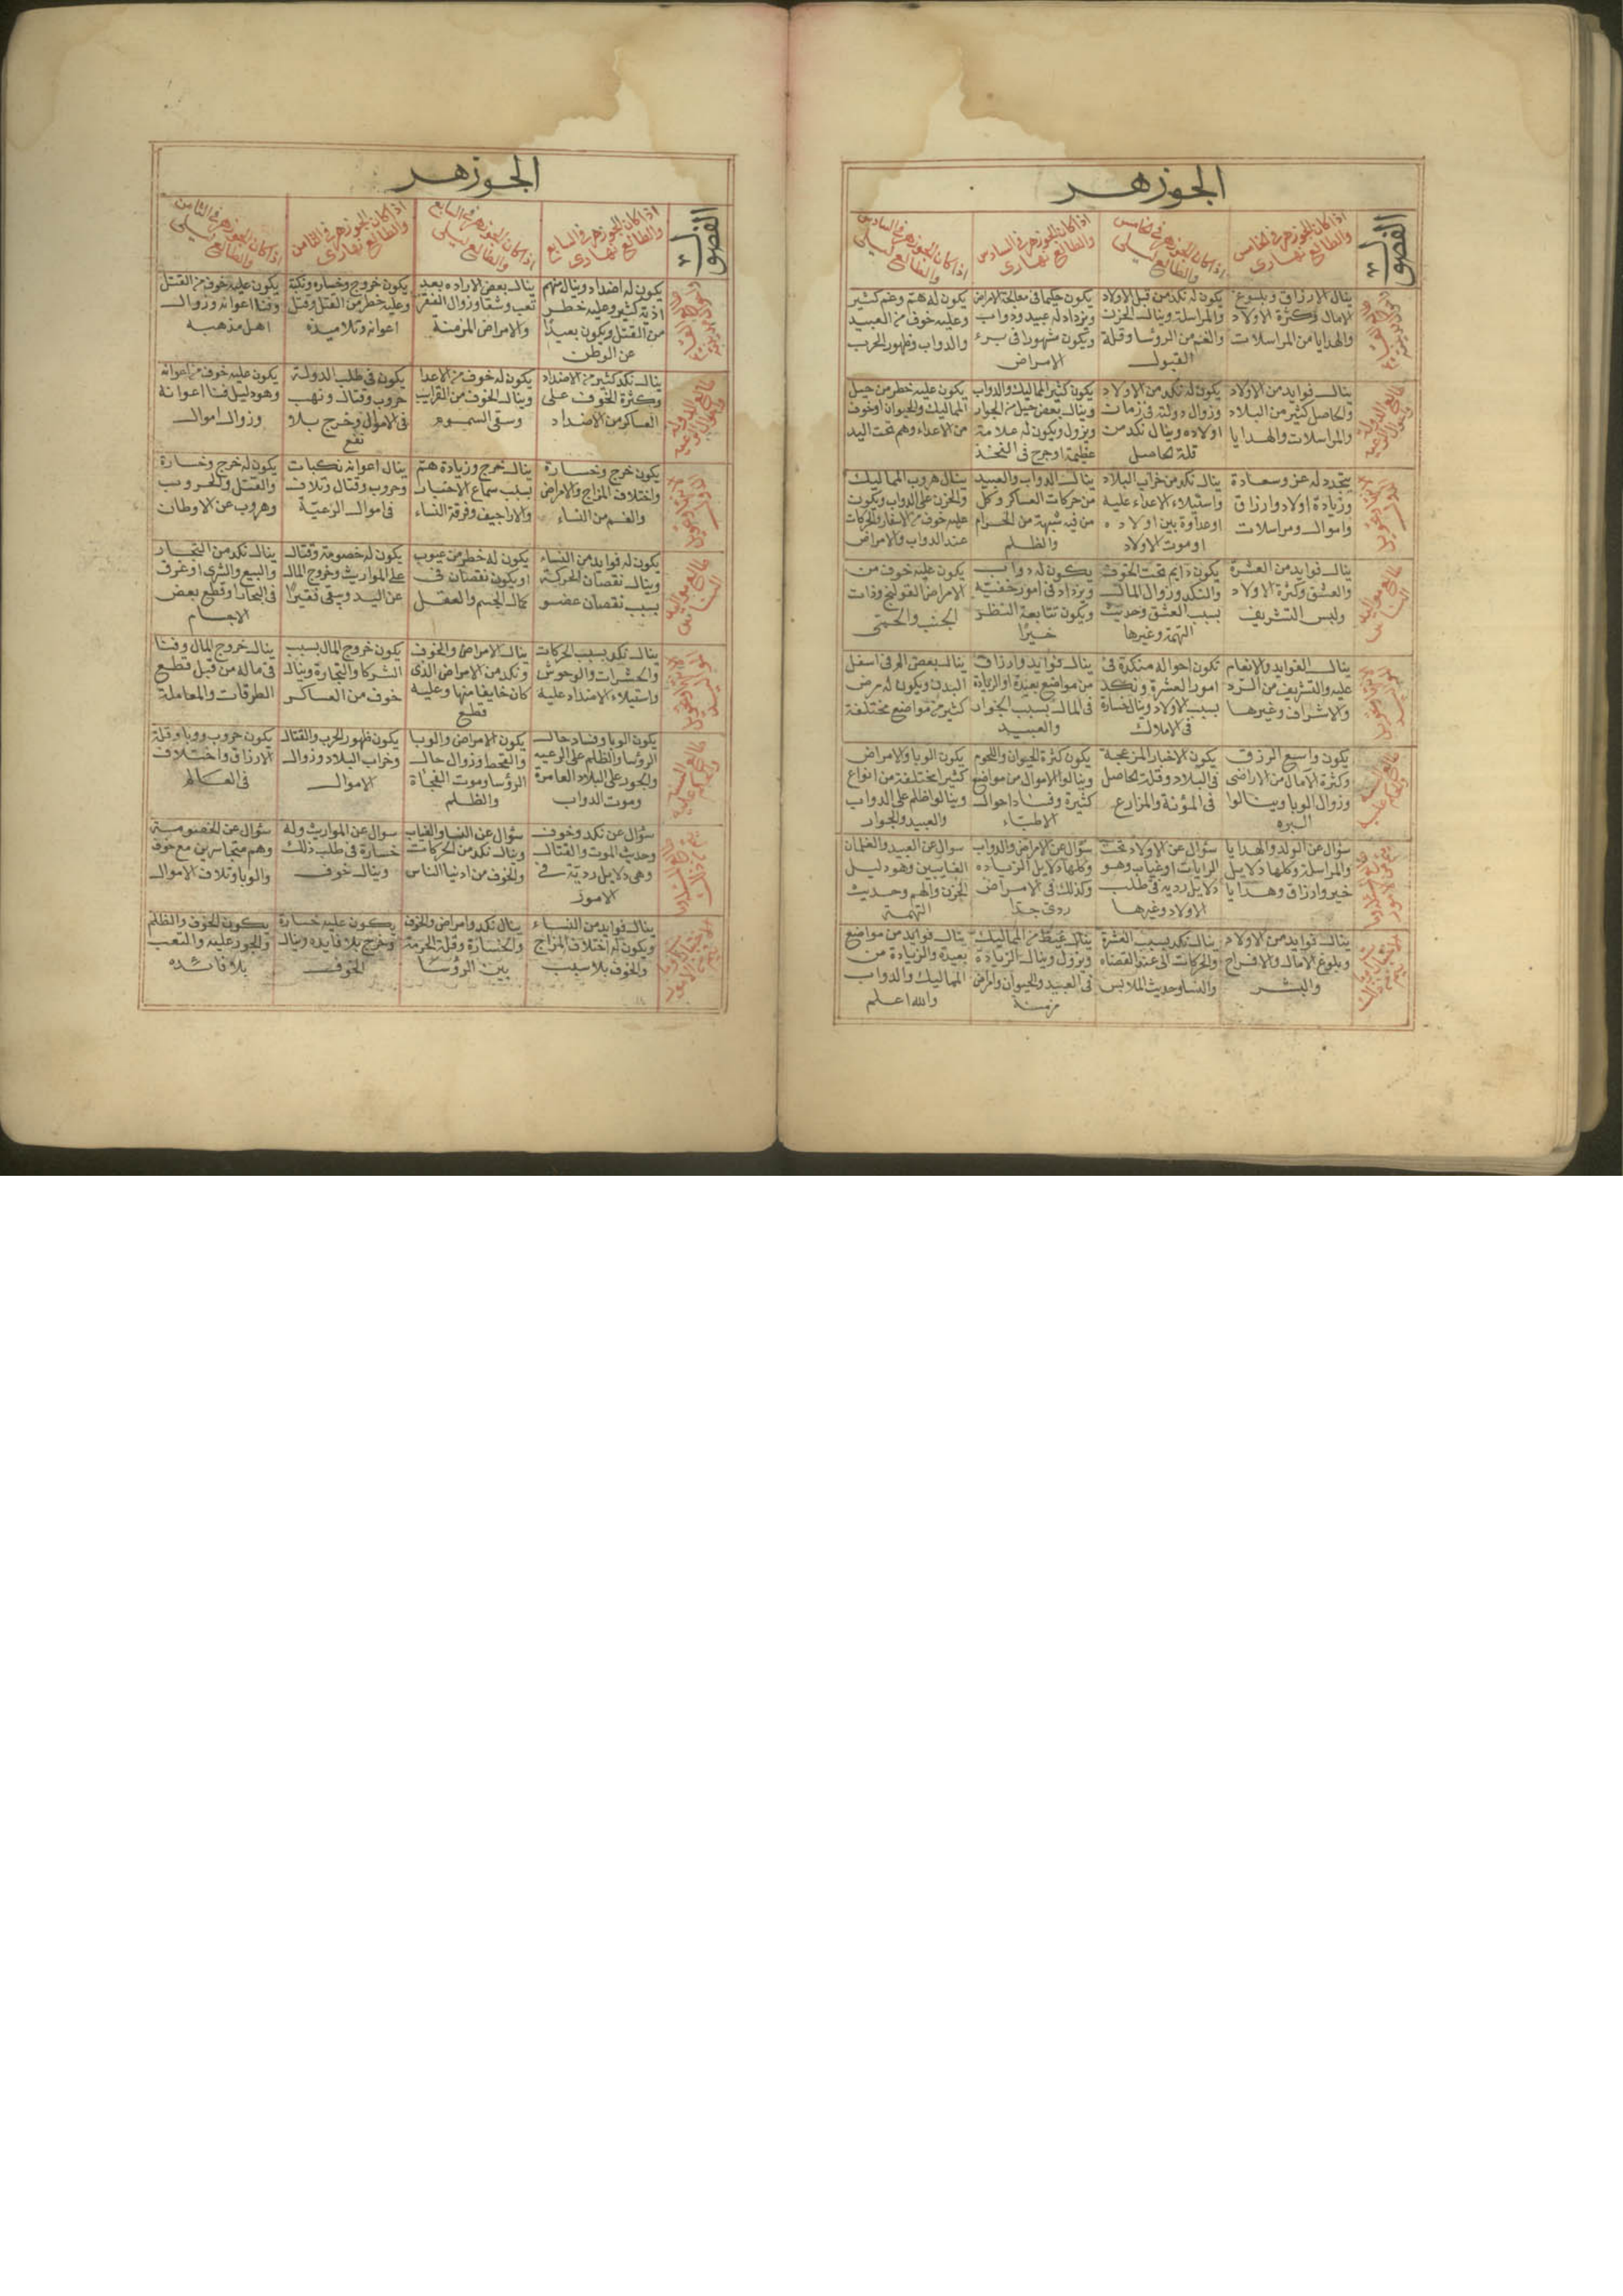 الجوزهر
الفصول
اذا كان الجوزهر فى الخامس
والطالع نهارى
اذا كان الجوزهر فى الخامس
والطالع ليلى
اذا كان الجوزهر فى السادس
والطالع نهارى
اذا كان الجوزهر فى السادس
والطالع ليلى
ينال الارزاق وبلوغ
الامال وكثرة الاولاد
والهدايا من المراسلات
يكون له نكد من قبل الاولاد
والمراسلة وينال الحزن
والغم من الرؤسا وقلة
القبول
يكون حكيما فى معالجة الامراض
ويزداد له عبيد ودواب
ويكون مشهورا فى برء
الامراض
يكون له هم وغم كثير
وعليه خوف من العبيد
والدواب وظهور الحرب
ينال فوايد من الاولاد
والحاصل كثير من البلاد
والمراسلات والهدايا
يكون له نكد من الاولاد
وزوال دولته فى زمان
اولاده وينال نكد من
قلة الحاصل
يكون كثير المماليك والدواب
وينال بعض حيل من الجوار
ويزول ويكون له علامة
عظيمة او جرح فى الفخذ
يكون عليه خطر من حيل
المماليك والحيوان او خوف
من الاعداء وهم تحت اليد
يتجدد له عز وسعادة
وزيادة اولاد وارزاق
واموال ومراسلات
ينال نكد من خراب البلاد
واستيلاء الاعداء عليه
او عداوة بين اولاده
او موت الاولاد
ينال الدواب والعبيد
من حركات العساكر وكل
من فيه شبهة من الحرام
والظلم
ينال هروب المماليك
والحزن على الدواب ويكون
عليه خوف من الاسفار والحركات
عند الدواب والامراض
ينال فوايد من العشرة
والعشق وكثرة الاولاد
ولبس التشريف
يكون دايم تحت الخوف
والنكد وزوال المال
بسبب العشق وحديث
التهمة وغيرها
يكون له دواب
ويزداد فى امور خفية
ويكون تتابعه النظر
خيرا
يكون عليه خوف من
الامراض القولنج وذات
الجنب والحمى
ينال الفوايد والانعام
عليه والتشريف من
والاشراف وغيرها
تكون احواله منكدة فى
امور العشرة ونكد
بسبب الاولاد وينال خسارة
فى الاملاك
ينال فوايد وارزاق
من مواضع بعيدة او الزيادة
فى المال بسبب الجوار
والعبيد
ينال بعض الم فى اسفل
البدن ويكون له مرض
كثير من مواضع مختلفة
يكون واسع الرزق
وكثرة الامال من الاراضى
وزوال الوبا وينالوا
يكون الاخبار المزعجة
فى البلاد وقلة الحاصل
فى المؤنة والمزارع
يكون كثرة الحيوان واللحوم
وينالوا الاموال من مواضع
كثيرة وفساد احوال
الاطباء
يكون الوبا والامراض
كثير المختلفة من انواع
وينالوا ظلم على الدواب
والعبيد والجوار
سؤال عن الولد والهدايا
والمراسلة وكلها دلايل
خير وارزاق وهدايا
سؤال عن الاولاد تحت
الولايات او غياب وهو
دلايل ردية فى طلب
الاولاد وغيرها
سؤال عن الامراض والدواب
وكلها دلايل الزياده
وكذلك فى الامراض
ردى جدا
سوال عن العبيد والغلمان
الغايبين وهو دليل
الحزن والهم وحديث
التهمة
ينال فوايد من الاولاد
وبلوغ الامال والافراح
والبشر
ينال نكد بسبب العشرة
والحركات الى عند القضاه
والنسا وحديث الملابس
ينال غيظ من المماليك
ويزول وينال الزيادة
فى العبيد والحيوان وامراض
مزمنة
ينال فوايد من مواضع
بعيدة والزيادة من
المماليك والدواب
والله اعلم
الجوزهر
الفصول
اذا كان الجوزهر فى السابع
والطالع نهارى
اذا كان الجوزهر فى السابع
والطالع ليلى
اذا كان الجوزهر فى الثامن
والطالع نهارى
اذا كان الجوزهر فى الثامن
والطالع ليلى
يكون له اضداد وينال منهم
اذية كثير وعليه خطر
من القتل ويكون بعيدا
عن الوطن
ينال بعض الاراده بعد
تعب وشقا وزوال الفقر
والامراض المزمنة
يكون خروج وخساره ونكبة
وعليه خطر من القتل وقتل
اعوانه وتلاميذه
يكون عليه خوف من القتل
وفنا اعوانه وزوال
اهل مذهبه
ينال نكد كثير من الاضداد
وكثرة الخوف على
العساكر من الاضداد
يكون له خوف من الاعدا
وينال الخوف من القرايب
وسقى السموم
يكون فى طلب الدولة
حروب وقتال ونهب
فى الاموال وخرج بلا
نفع
يكون عليه خوف من اعوانه
وهو دليل فنا اعوانه
وزوال اموال
يكون خرج وخسارة
واختلاف المزاج والامراض
والغم من النساء
ينال خرج وزيادة هم
بسبب سماع الاخبار
والاراجيف وفرقة النساء
ينال اعوانه نكبات
وحروب وقتال وتلاف
فى اموال الرعية
يكون له خرج وخسارة
والقتل والحروب
وهروب عن الاوطان
يكون له فوايد من النساء
وينال نقصان الحركة
بسبب نقصان عضو
يكون له خطر من عيوب
او يكون نقصان فى
كمال الجسم والعقل
يكون له خصومة وقتال
على المواريث وخروج المال
عن اليد ويبقى فقيرا
ينال نكد من التجار
والبيع والشرى او غرق
فى البحار او قطع بعض
الاجسام
ينال نكد بسبب الحركات
والحشرات والوحوش
واستيلاء الاضداد عليه
ينال الامراض والخوف
ونكد من الامراض الذى
كان خايفا منها وعليه
قطع
يكون خروج المال بسبب
الشركا والتجارة وينال
خوف من العساكر
ينال خروج المال وفنا
فى ماله من قبل قطع
الطرقات والمعاملة
يكون الوبا وفساد حال
الرؤسا والظلم على الرعيه
والجور على البلاد العامرة
وموت الدواب
يكون الامراض والوبا
والقحط وزوال حال
الرؤسا وموت الفجاة
والظلم
يكون ظهور الحرب والقتال
وخراب البلاد وزوال
الاموال
يكون حروب ووبا وقلة
الارزاق واختلاف
فى العالم
سؤال عن نكد وخوف
وحدث الموت والقتال
وهى دلايل ردية فى
الامور
سؤال عن النسا والغياب
وينال نكد من الحركات
والخوف من ادنيا الناس
سوال عن المواريث وله
خسارة فى طلب ذلك
وينال خوف
سؤال عن الخصومة
وهم متجاسرين مع خوف
والوبا وتلاف الاموال
ينال فوايد من النساء
ويكون له اختلاف المزاج
والخوف بلا سبب
ينال نكد وامراض والخوف
والخسارة وقلة الحرمة
بين الرؤسا
يكون عليه خسارة
وخرج بلا فايده وينال
الخوف
يكون الخوف والظلم
والجور عليه والتعب
بلا فائده